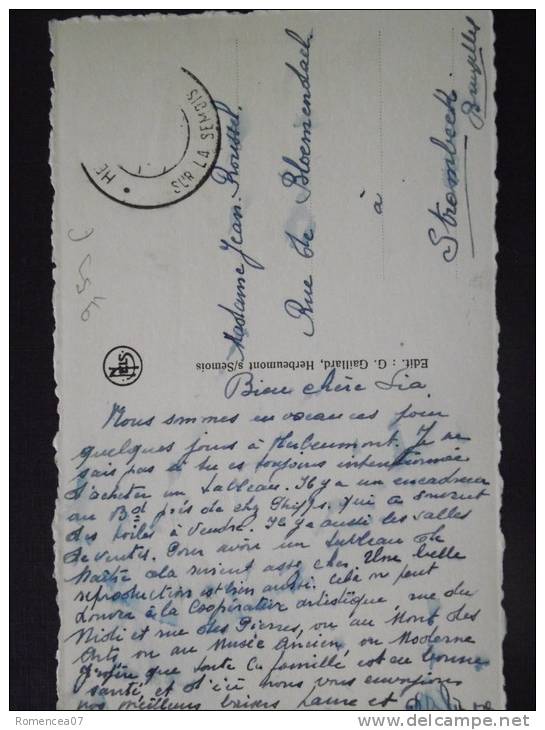 HE
SUR LA SEMOIS
Madame Jean Roussel.
Rue de Bloemendael
à
Strombeek.
Bruxelles
Edit. : G. Gaillard, Herbeumont s/Semois
Bien chère Lia
Nous sommes en vacances pour
quelques jours à Herbeumont. Je ne
sais pas si tu es toujours intentionnée
d'acheter un tableau. Il y a un encadreur
au Bd près de chez qui a souvent
des toiles à vendre. Il y a aussi les salles
de ventes. Pour avoir un tableau de
Maître cela revient assez cher. Une belle
reproduction est bien aussi. Cela on peut
à la Coopérative artistique, rue du
Midi et rue des Pierres, ou au Mont des
Arts ou au Musée Ancien, ou Moderne
que toute la famille est en bonne
santé, et d'ici nous vous envoyons
nos meilleurs baisers Laure et
Romencea07
delcampe.net